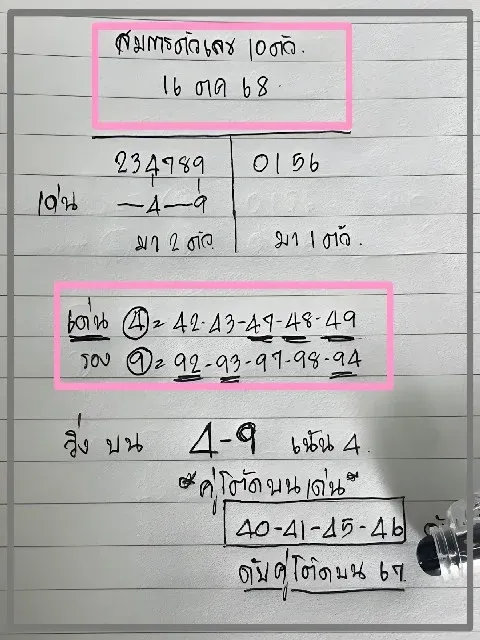 สมการตัวเลข 10 ตัว.
16 ตค 68.
234789 0156
เด่น —4—9
มา 2 ตัว มา 1 ตัว.
เด่น ④ = 42-43-47-48-49
รอง ⑨ = 92-93-97-98-94
วิ่ง บน 4-9 เน้น 4.
*คู่โต๊ดบนเด่น*
40-41-45-46
ดับคู่โต๊ดบน 67